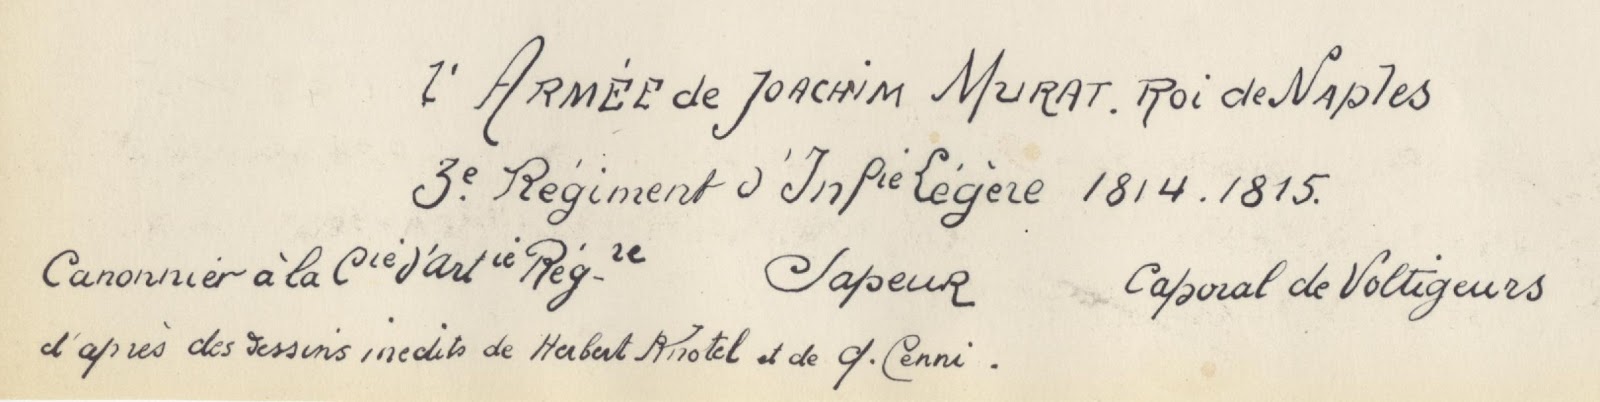 l'ARMÉE de JOACHIM MURAT. Roi de Naples
3e. Régiment d'Infie Légère 1814.1815.
Canonnier à la Cie d'Artie Rég-re Sapeur Caporal de Voltigeurs
d'après des dessins inédits de Herbert Knotel et de Q. Cenni.